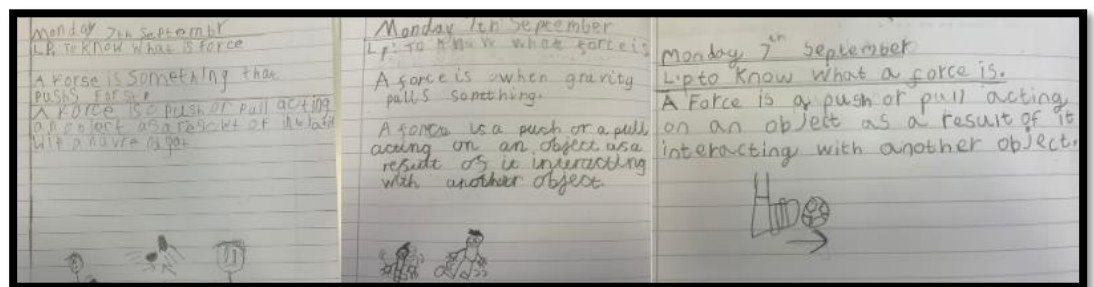 Monday 7th September
L.P. To Know What is force
A Forse is Something that
pushs
A Force is a push or pull acting
an object as a resclt of
Monday 7th September
L.p: To know what force is
A force is when gravity
pulls something.
A force is a push or a pull
acting on an object as a
result of it interacting
with another object.
Monday 7th September
L.p to Know What a force is.
A Force is a push or pull acting
on an object as a result of it
interacting with another object.